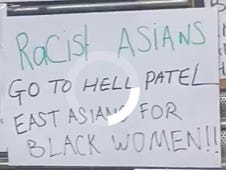 Racist ASIANS
GO TO HELL PATEL
EAST ASIANS FOR
BLACK WOMEN!!